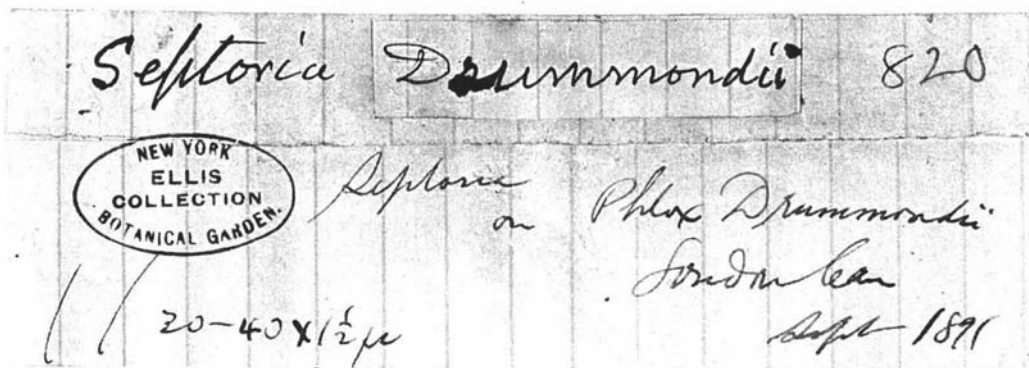 Septoria Drummondii 820
NEW YORK
ELLIS
COLLECTION
BOTANICAL GARDEN.
Septoria
on Phlox Drummondii
London Can
Sept 1891
20-40 X 1½ µ